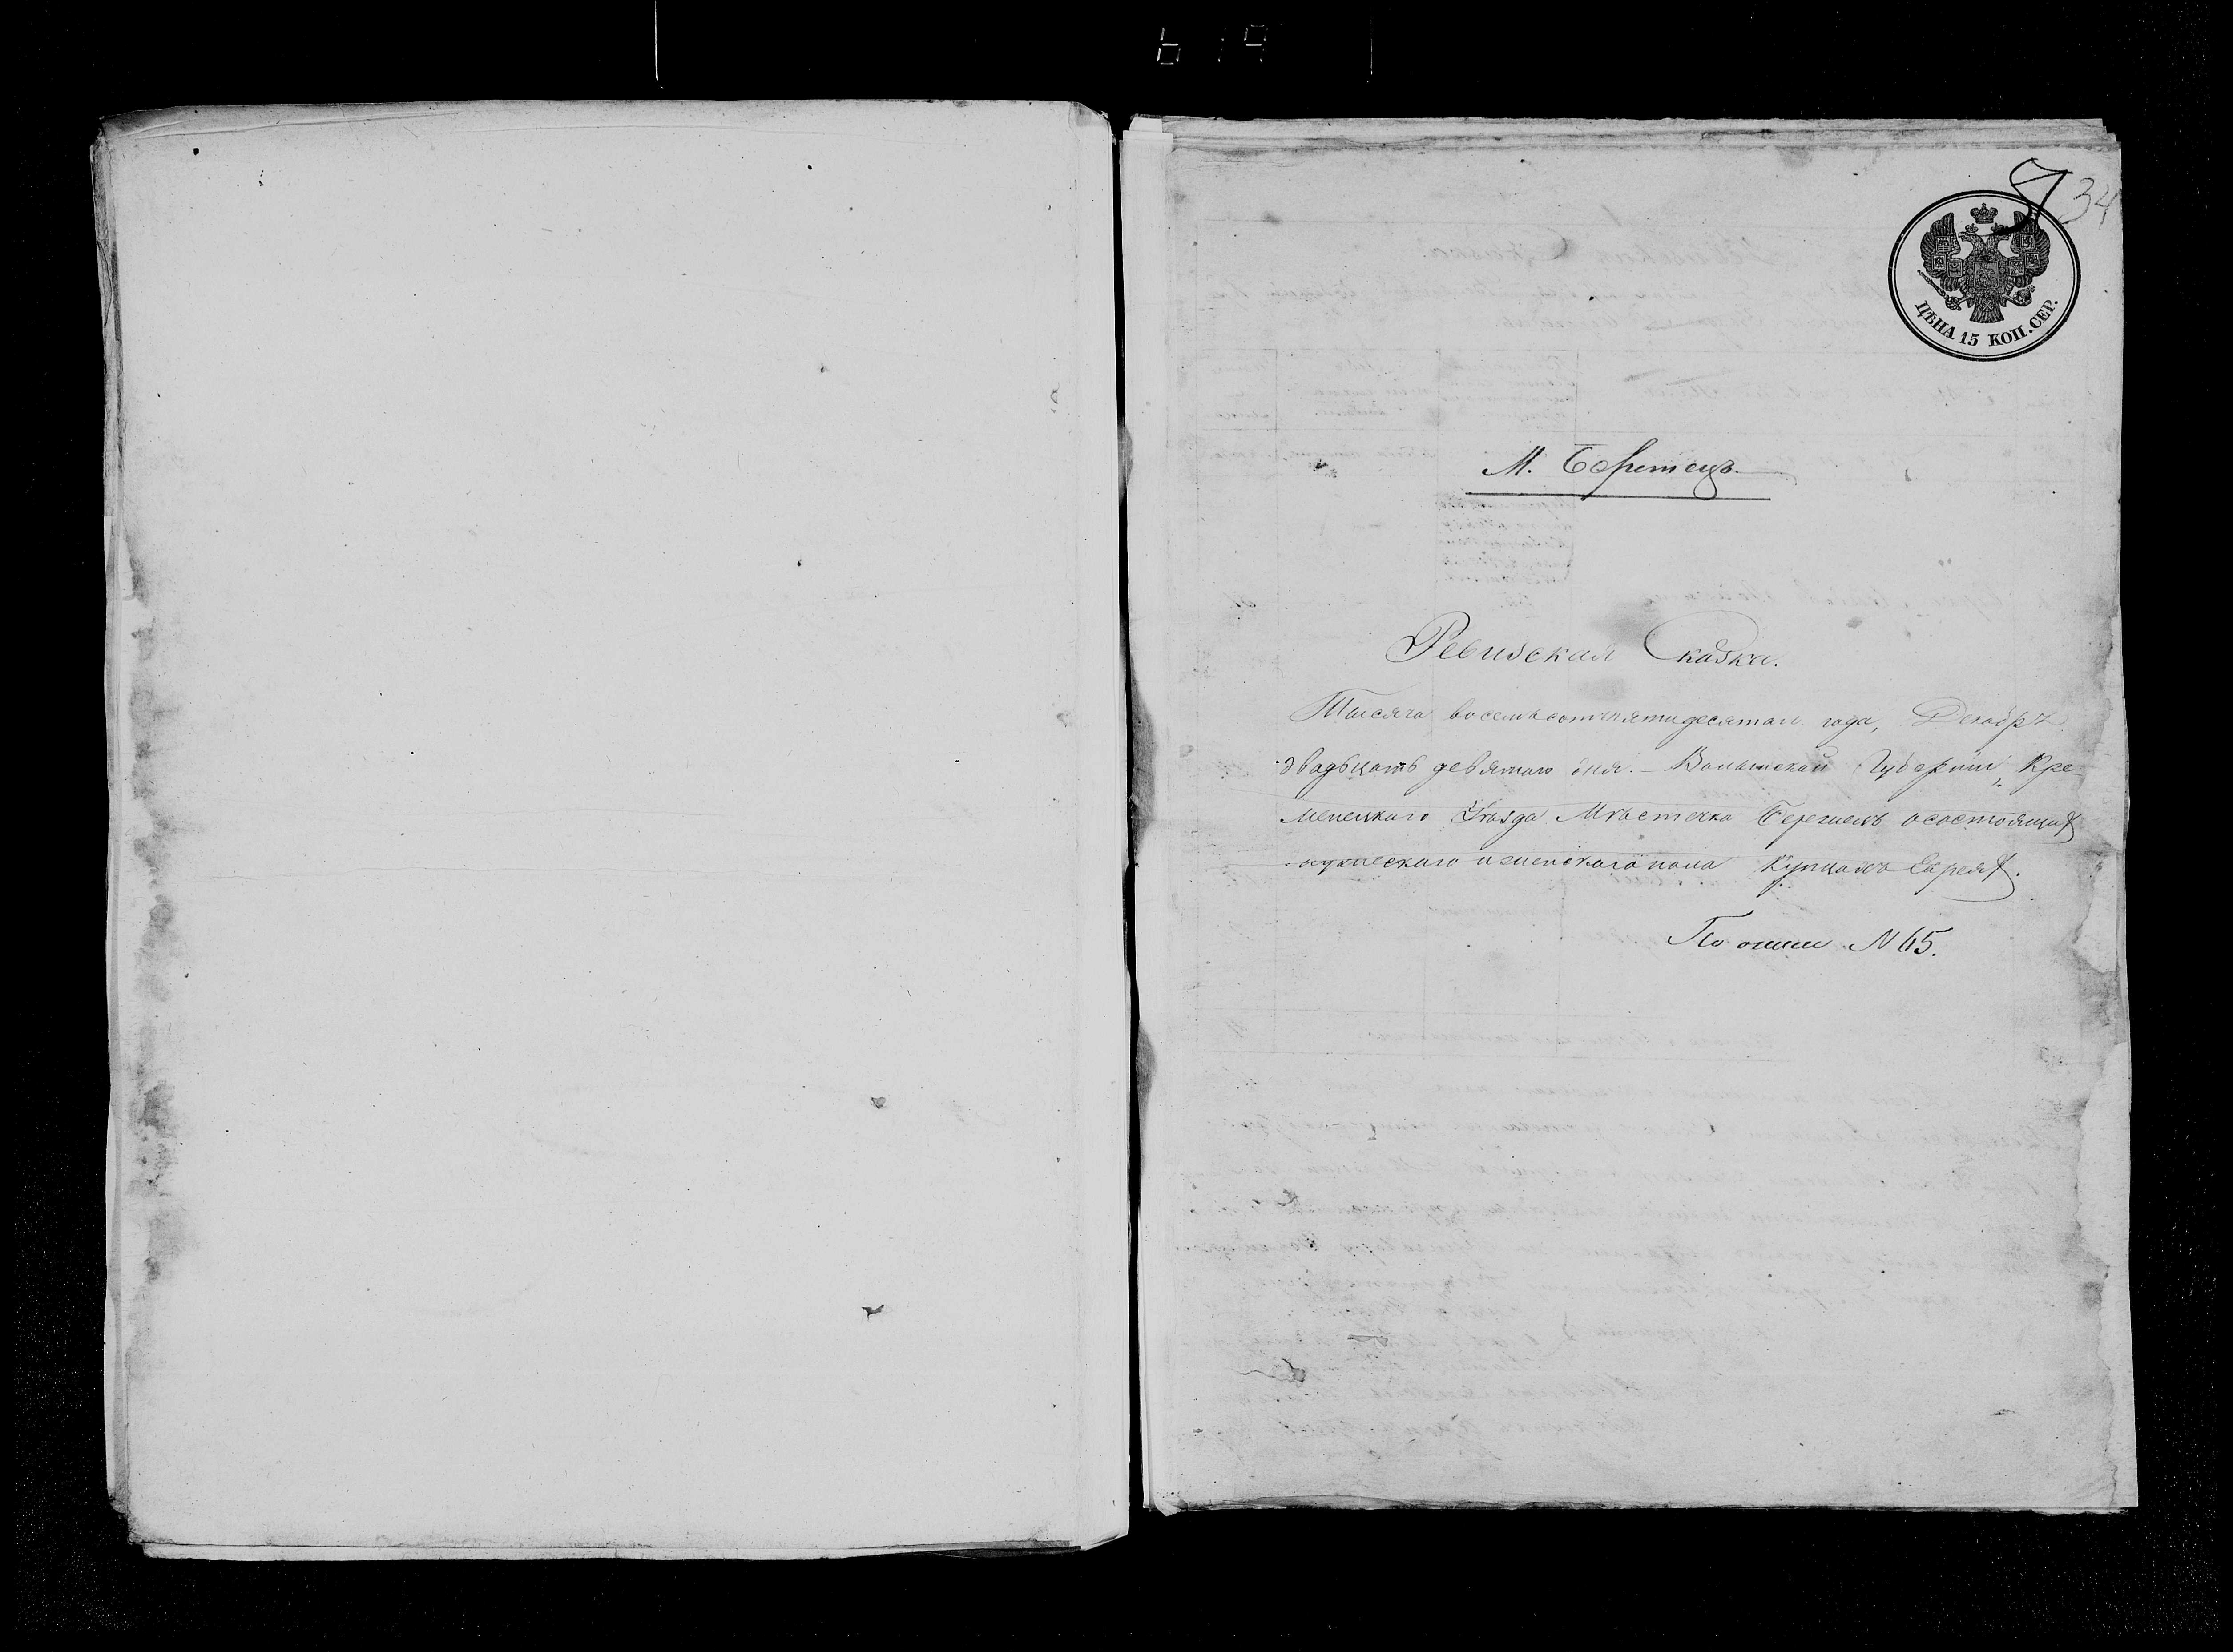 619
34
ЦѢНА 15 КОП. СЕР.
М. Бережецъ.
Ревизская Сказка.
Тысяча восемьсотъ пятидесятаго года, Декабря
двадцать девятаго дня. - Волынской Губерніи, Кре-
менецкаго Уѣзда Мѣстечка о состоящихъ
мужескаго и женскаго пола Купцахъ Евреяхъ.
По описи N 65.